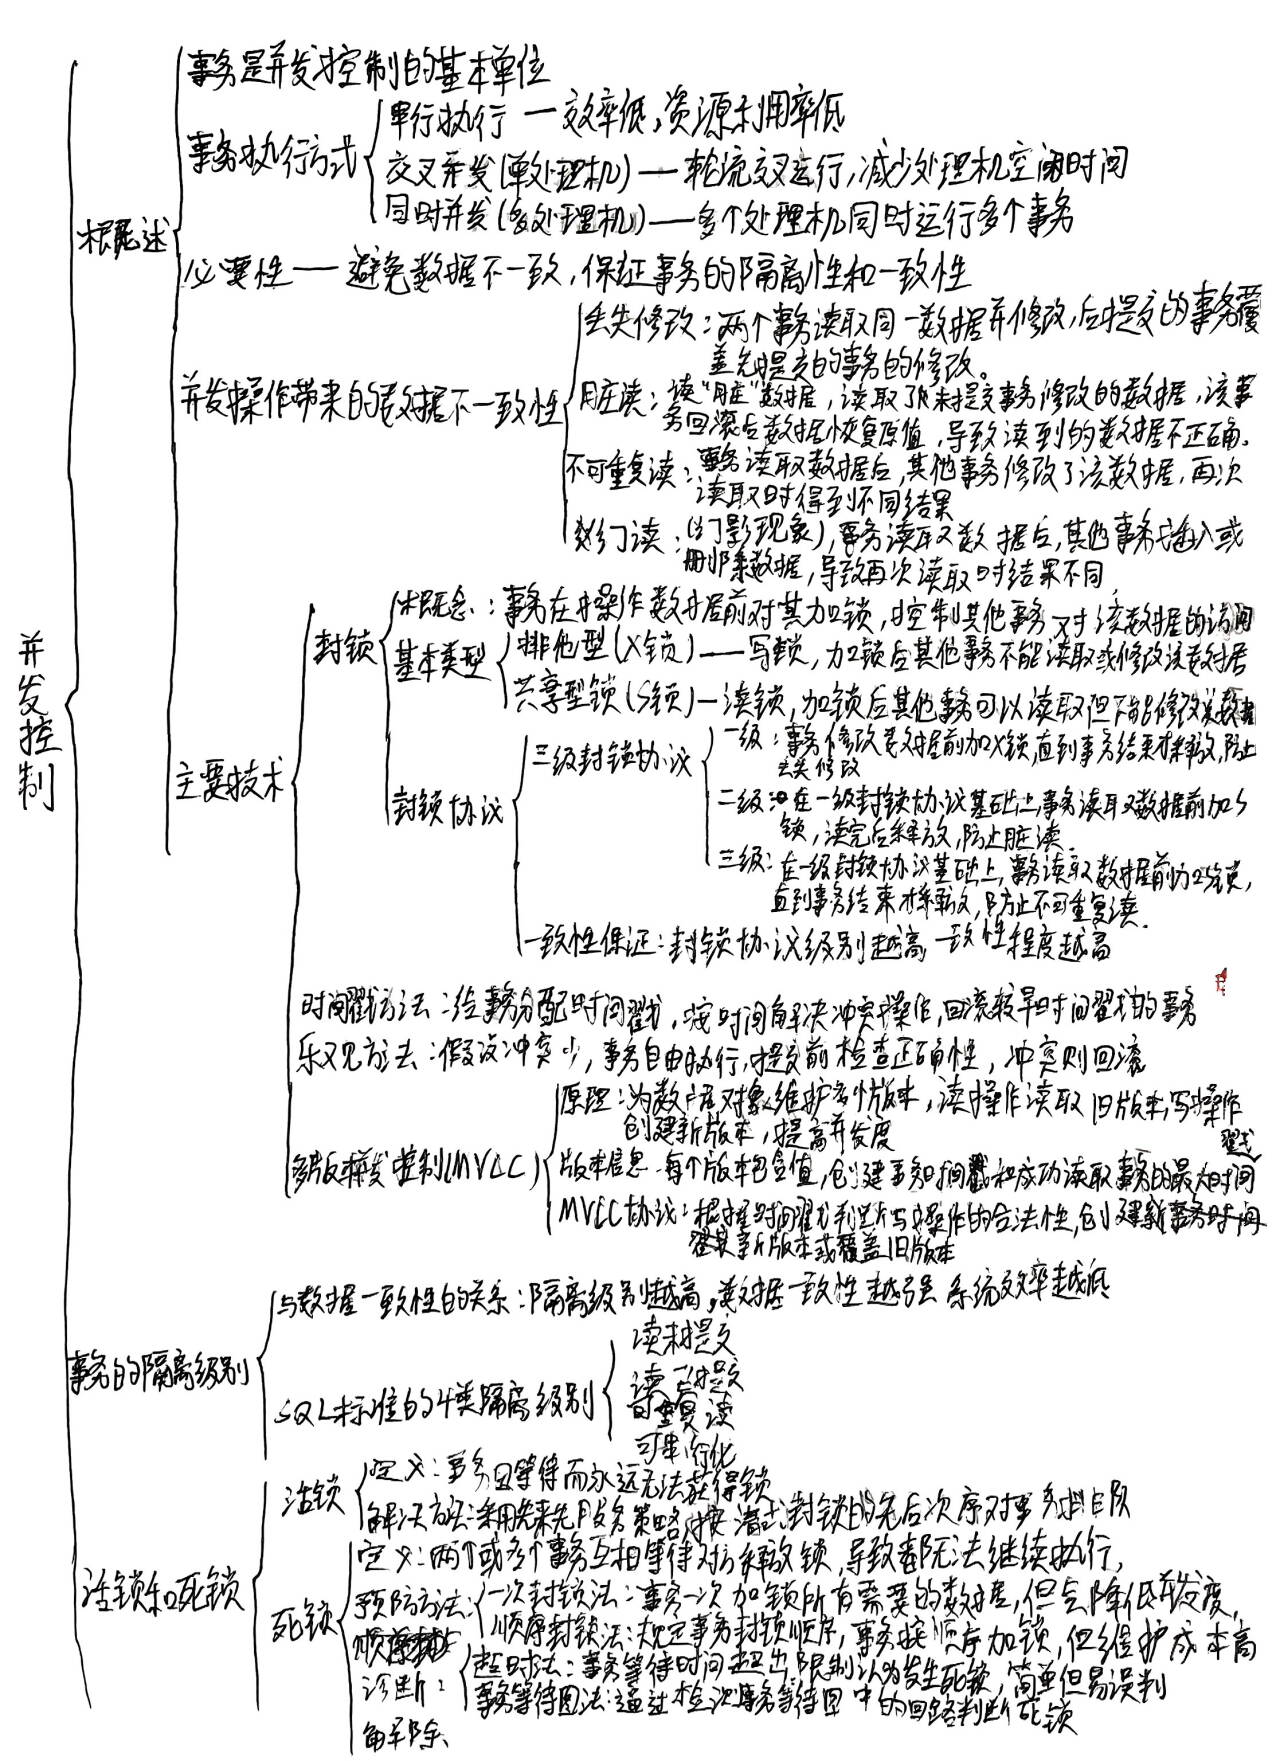 并发控制
概述
事务是并发控制的基本单位
事务执行方式
串行执行 — 效率低,资源利用率低
交叉并发(单处理机) — 轮流交叉运行,减少处理机空闲时间
同时并发(多处理机) — 多个处理机同时运行多个事务
必要性 — 避免数据不一致,保证事务的隔离性和一致性
并发操作带来的数据不一致性
丢失修改:两个事务读取同一数据并修改,后提交的事务覆
盖先提交的事务的修改。
脏读:读"脏"数据,读取了未提交事务修改的数据,该事
务回滚后数据恢复原值,导致读到的数据不正确。
不可重复读:事务读取数据后,其他事务修改了该数据,再次
读取时得到不同结果
幻读:(幻影现象),事务读取数据后,其他事务插入或
删除数据,导致再次读取时结果不同
主要技术
封锁
概念:事务在操作数据前对其加锁,控制其他事务对该数据的访问
基本类型
排他型(X锁) — 写锁,加锁后其他事务不能读取或修改该数据
共享型锁(S锁) — 读锁,加锁后其他事务可以读取但不能修改该数据
封锁协议
三级封锁协议
一级:事务修改数据前加X锁,直到事务结束才释放,防止
丢失修改
二级:在一级封锁协议基础上,事务读取数据前加S
锁,读完后释放,防止脏读.
三级:在一级封锁协议基础上,事务读取数据前加S锁,
直到事务结束才释放,防止不可重复读.
一致性保证:封锁协议级别越高 一致性程度越高
时间戳方法:给事务分配时间戳,按时间解决冲突操作,回滚较早时间戳的事务
乐观方法:假设冲突少,事务自由执行,提交前检查正确性,冲突则回滚
多版本并发控制(MVCC)
原理:为数据对象维护多个版本,读操作读取旧版本,写操作
创建新版本,提高并发度
版本信息 每个版本包含值,创建事务时间戳和成功读取事务的最大时间戳
MVCC协议:根据时间戳判断写操作的合法性,创建新事务时间
新版本或覆盖旧版本
事务的隔离级别
与数据一致性的关系:隔离级别越高,数据一致性越强 系统效率越低
SQL标准的4类隔离级别
读未提交
读已提交
可重复读
可串行化
活锁和死锁
活锁
定义:事务因等待而永远无法获得锁
解决方法:采用先来先服务策略,按请求封锁的先后次序对事务排队
死锁
定义:两个或多个事务互相等待对方释放锁,导致都无法继续执行,
预防方法:
一次封锁法:事务一次加锁所有需要的数据,但会降低并发度,
顺序封锁法:规定事务封锁顺序,事务按顺序加锁,但维护成本高
诊断:
超时法:事务等待时间超出限制认为发生死锁,简单但易误判
事务等待图法:通过检测事务等待图中的回路判断死锁
解除.